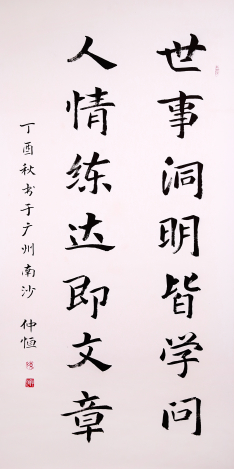 世事洞明皆学问
人情练达即文章
丁酉秋书于广州南沙 仲恒